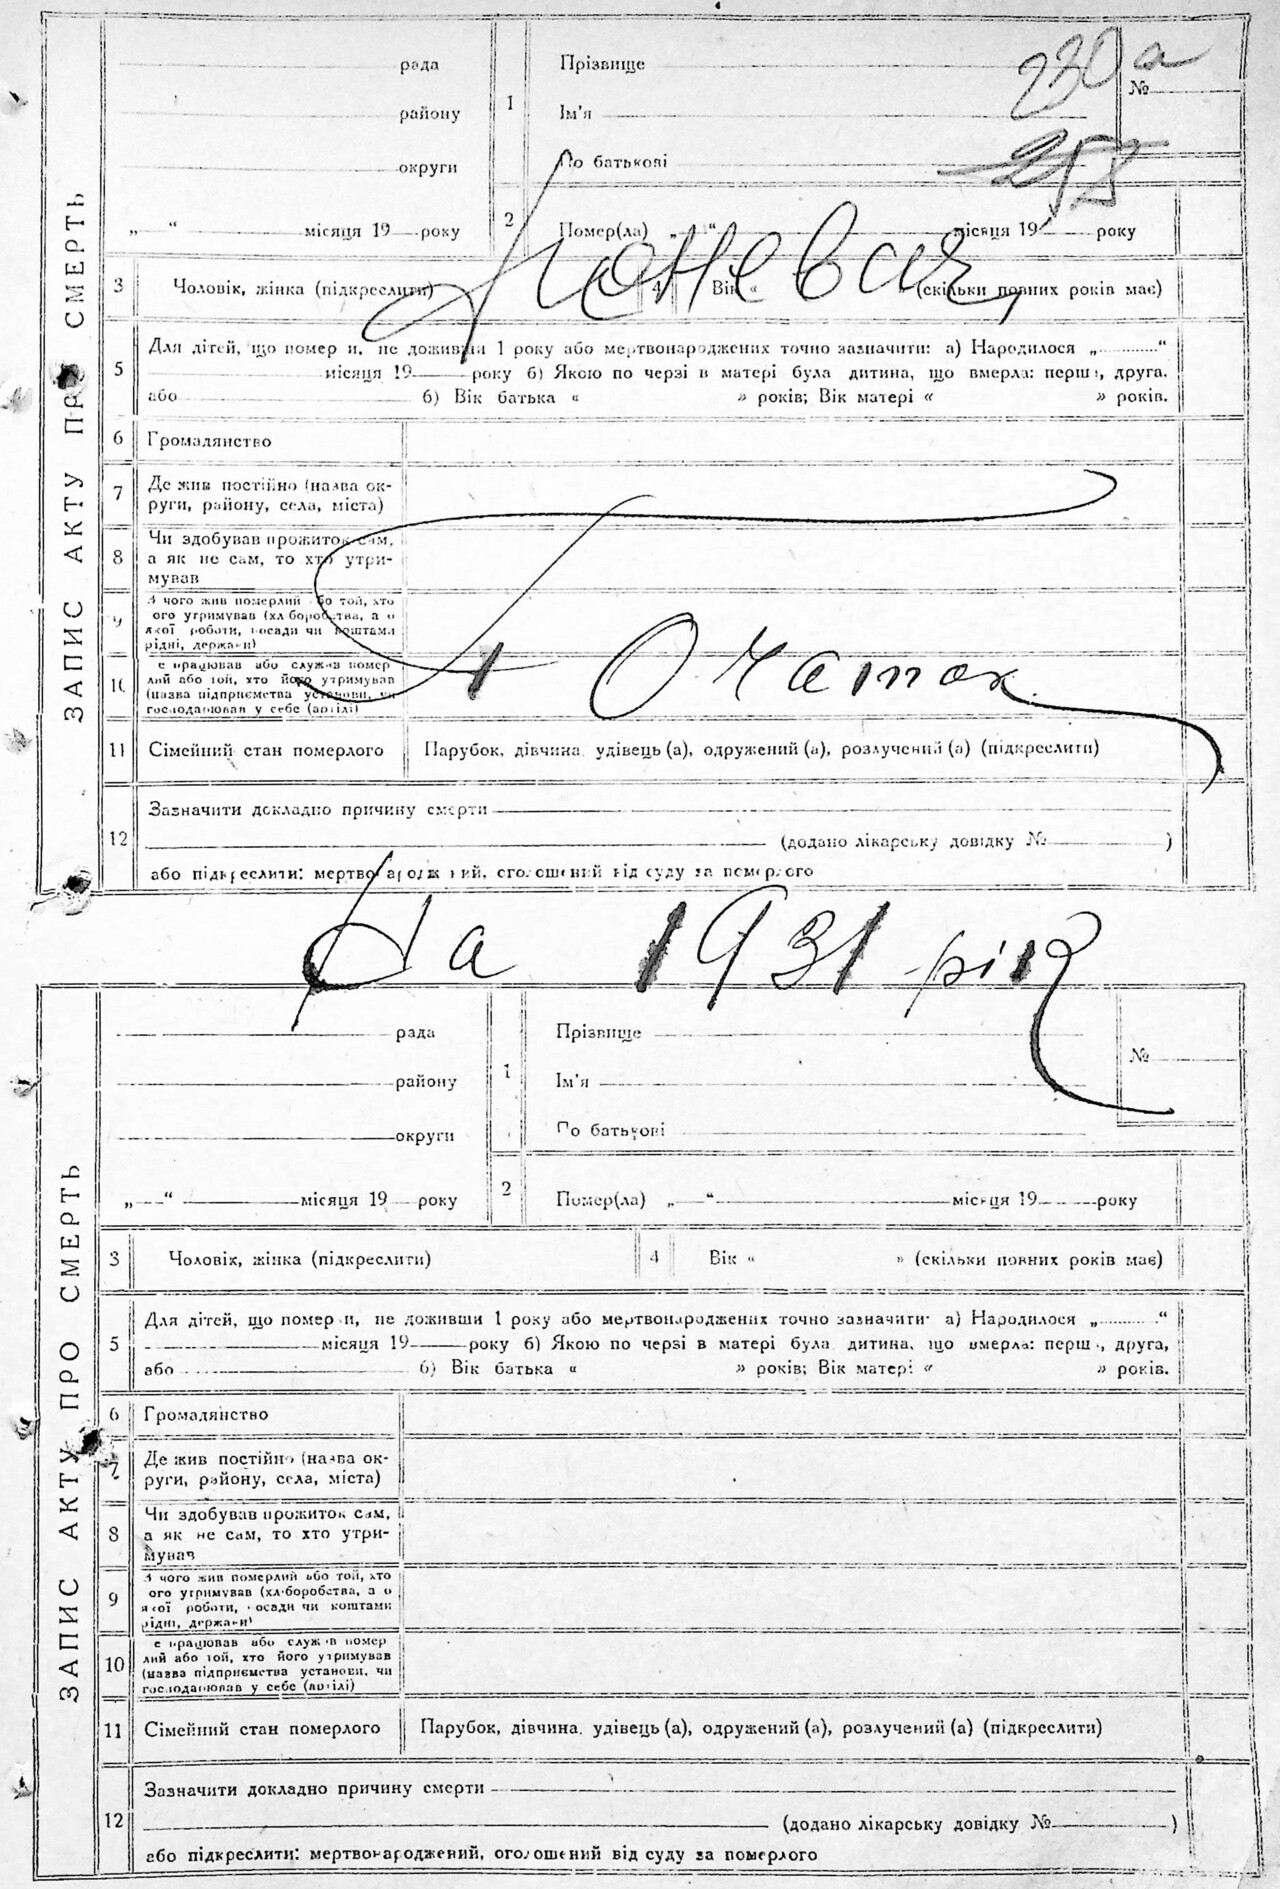 ЗАПИС АКТУ ПРО СМЕРТЬ
рада
району
округи
„ “ місяця 19 року
1
Прізвище
Ім'я
По батькові
№
230 а
2
Помер(ла) „ “ місяця 19 року
3 Чоловік, жінка (підкреслити)
4 Вік « (скільки повних років має)
5 Для дітей, що померли, не доживши 1 року або мертвонароджених точно зазначити: а) Народилося „ “
місяця 19 року б) Якою по черзі в матері була дитина, що вмерла: перша, друга,
або б) Вік батька « » років; Вік матері « » років.
6 Громадянство
7 Де жив постійно (назва ок-
руги, району, села, міста)
8 Чи здобував прожиток сам,
а як не сам, то хто утри-
мував
9 З чого жив померлий або той, хто
його утримував (хліборобства, а о
якої роботи, посади чи коштами
рідні, держави)
10 е працював або служив помер
лий або той, хто його утримував
(назва підприємства установи, чи
господарював у себе (артілі)
11 Сімейний стан померлого Парубок, дівчина, удівець (а), одружений (а), розлучений (а) (підкреслити)
12 Зазначити докладно причину смерти
(додано лікарську довідку № )
або підкреслити: мертвонароджений, оголошений від суду за померлого
На 1931 рік
ЗАПИС АКТУ ПРО СМЕРТЬ
рада
району
округи
„ “ місяця 19 року
1
Прізвище
Ім'я
По батькові
№
2
Помер(ла) „ “ місяця 19 року
3 Чоловік, жінка (підкреслити)
4 Вік « » (скільки повних років має)
5 Для дітей, що померли, не доживши 1 року або мертвонароджених точно зазначити: а) Народилося „ “
місяця 19 року б) Якою по черзі в матері була дитина, що вмерла: перша, друга,
або б) Вік батька « » років; Вік матері « » років.
6 Громадянство
7 Де жив постійно (назва ок-
руги, району, села, міста)
8 Чи здобував прожиток сам,
а як не сам, то хто утри-
мував
9 З чого жив померлий або той, хто
його утримував (хліборобства, а о
якої роботи, посади чи коштами
рідні, держави)
10 е працював або служив помер
лий або той, хто його утримував
(назва підприємства установи, чи
господарював у себе (артілі)
11 Сімейний стан померлого Парубок, дівчина, удівець (а), одружений (а), розлучений (а) (підкреслити)
12 Зазначити докладно причину смерти
(додано лікарську довідку № )
або підкреслити: мертвонароджений, оголошений від суду за померлого